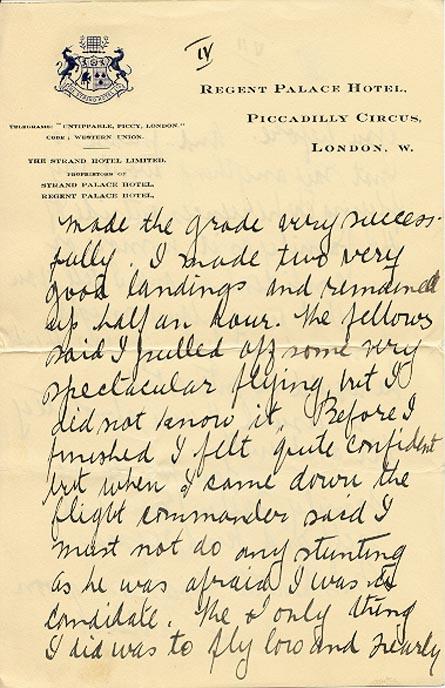 IV
REGENT PALACE HOTEL,
PICCADILLY CIRCUS,
LONDON, W.
TELEGRAMS: "UNTIPPABLE, PICCY, LONDON."
CODE: WESTERN UNION.
THE STRAND HOTEL LIMITED.
PROPRIETORS OF
STRAND PALACE HOTEL,
REGENT PALACE HOTEL,
made the grade very success-
fully. I made two very
good landings and remained
up half an hour. The fellows
said I pulled off some very
spectacular flying, but I
did not know it. Before I
finished I felt quite confident
but when I came down the
flight commander said I
must not do any stunting
as he was afraid I was a
candidate. The only thing
I did was to fly low and nearly